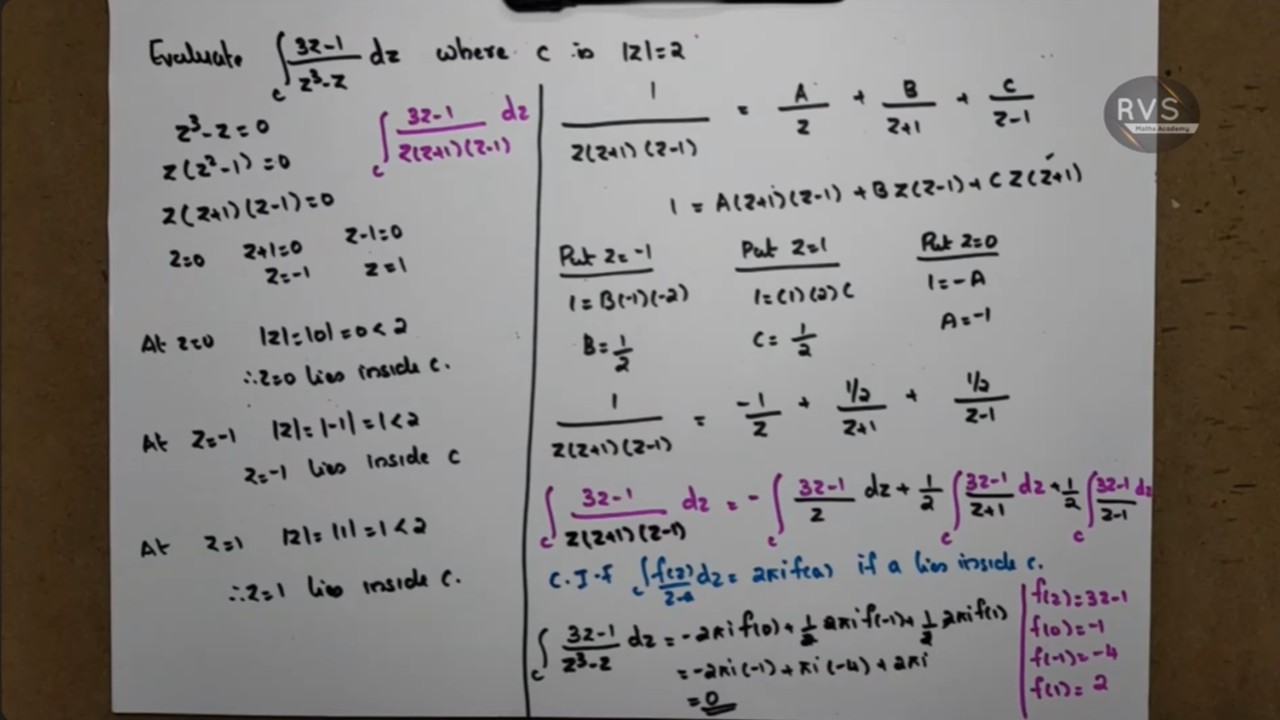 Evaluate ∫_C (3z-1)/(z³-z) dz where c is |z|=2
z³-z=0
z(z²-1)=0
z(z+1)(z-1)=0
z=0 z+1=0 z-1=0
z=-1 z=1
∫_C (3z-1)/(z(z+1)(z-1)) dz
At z=0 |z|=|0|=0<2
∴z=0 lies inside c.
At z=-1 |z|=|-1|=1<2
z=-1 lies inside c
At z=1 |z|=|1|=1<2
∴z=1 lies inside c.
1/(z(z+1)(z-1)) = A/z + B/(z+1) + C/(z-1)
1 = A(z+1)(z-1) + Bz(z-1) + Cz(z+1)
Put z=-1 Put z=1 Put z=0
1=B(-1)(-2) 1=(1)(2)C 1=-A
B=1/2 C=1/2 A=-1
1/(z(z+1)(z-1)) = -1/z + 1/2/(z+1) + 1/2/(z-1)
∫_C (3z-1)/(z(z+1)(z-1)) dz = -∫_C (3z-1)/z dz + 1/2 ∫_C (3z-1)/(z+1) dz + 1/2 ∫_C (3z-1)/(z-1) dz
C.I.F ∫_C f(z)/(z-a) dz = 2πi f(a) if a lies inside c.
∫_C (3z-1)/(z³-z) dz = -2πi f(0) + 1/2 2πi f(-1) + 1/2 2πi f(1)
= -2πi(-1) + πi(-4) + 2πi
= 0
f(z)=3z-1
f(0)=-1
f(-1)=-4
f(1)=2
RVS
Maths Academy